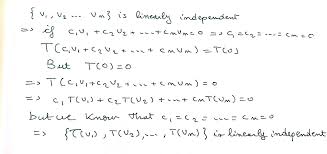 { v₁, v₂ ... vₘ } is linearly independent
=> if c₁v₁+c₂v₂+...+cₘvₘ=0 => c₁=c₂=...=cₘ=0
T(c₁v₁+c₂v₂+...+cₘvₘ)=T(0)
But T(0)=0
=> T(c₁v₁+c₂v₂+...+cₘvₘ)=0
=> c₁T(v₁)+c₂T(v₂)+...+cₘT(vₘ)=0
but we know that c₁=c₂=...=cₘ=0
=> {T(v₁), T(v₂),..., T(vₘ)} is linearly independent